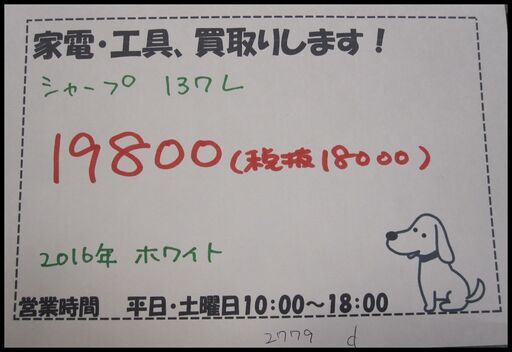 家電・工具、買取りします！
シャープ 137L
19800(税抜18000)
2016年 ホワイト
営業時間 平日・土曜日10:00～18:00
2779 d